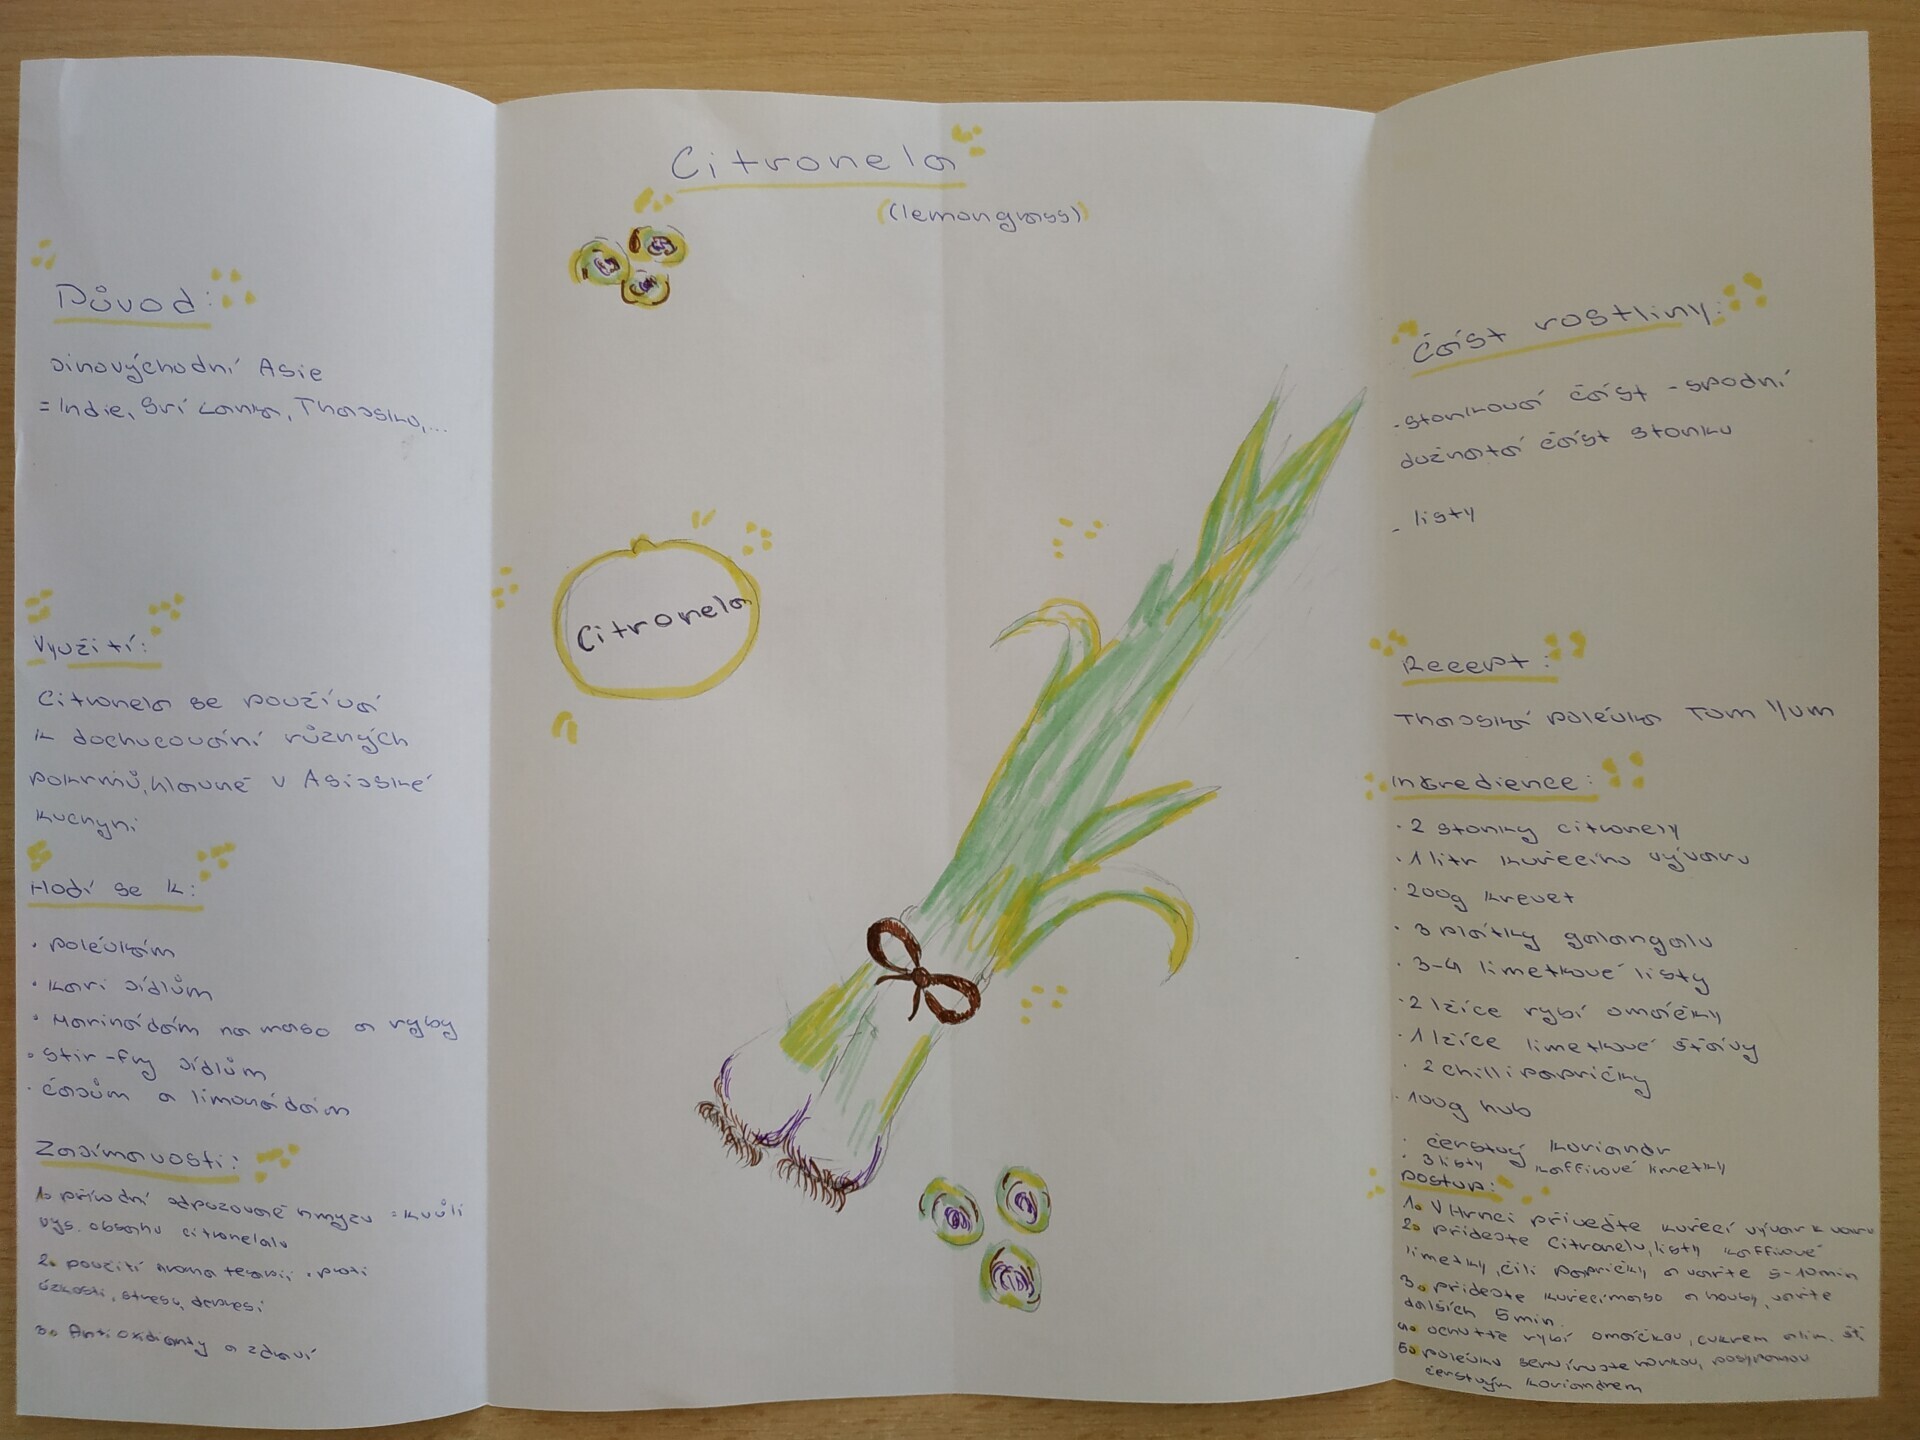 Citronela
(lemongrass)
Původ:
Jihovýchodní Asie
= Indie, Srí Lanka, Thajsku,...
Využití:
Citronela se používá
k dochucování různých
pokrmů, hlavně v Asijské
kuchyni
Hodí se k:
• polévkám
• kari jídlům
• Marinádám na maso a ryby
• Stir-fry jídlům
• čajům a limonádám
Zajímavosti:
1. přírodní odpuzovač hmyzu = kvůli
vys. obsahu citronelalu
2. použití aroma terapii • proti
úzkosti, stresu, depresi
3. Antioxidianty a zdraví
Citronela
Část rostliny:
- stonková část - spodní
dužnatá část stonku
- listy
Recept:
Thajská polévka Tom Yum
Ingredience:
• 2 stonky citronely
• 1 litr kuřecího vývaru
• 200g krevet
• 3 plátky galangalu
• 3-4 limetkové listy
• 2 lžíce rybí omáčky
• 1 lžíce limetkové šťávy
• 2 chilli papričky
• 100g hub
• čerstvý koriandr
• 3 listy kaffirové limetky
Postup:
1. V Hrnci přiveďte kuřecí vývar k varu
2. přidejte Citronelu, listy kaffirové
limetky, čili papričky a vařte 5-10min
3. přidejte kuřecí maso a houby, vařte
dalších 5min.
4. ochuťte rybí omáčkou, cukrem a lim. šť.
5. polévku servírujte horkou, posypanou
čerstvým koriandrem